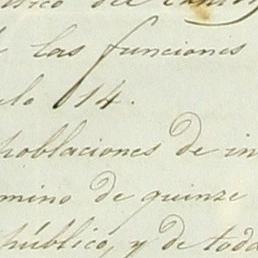 las funciones
14.
poblaciones de in
mino de quinze
público, y de toda